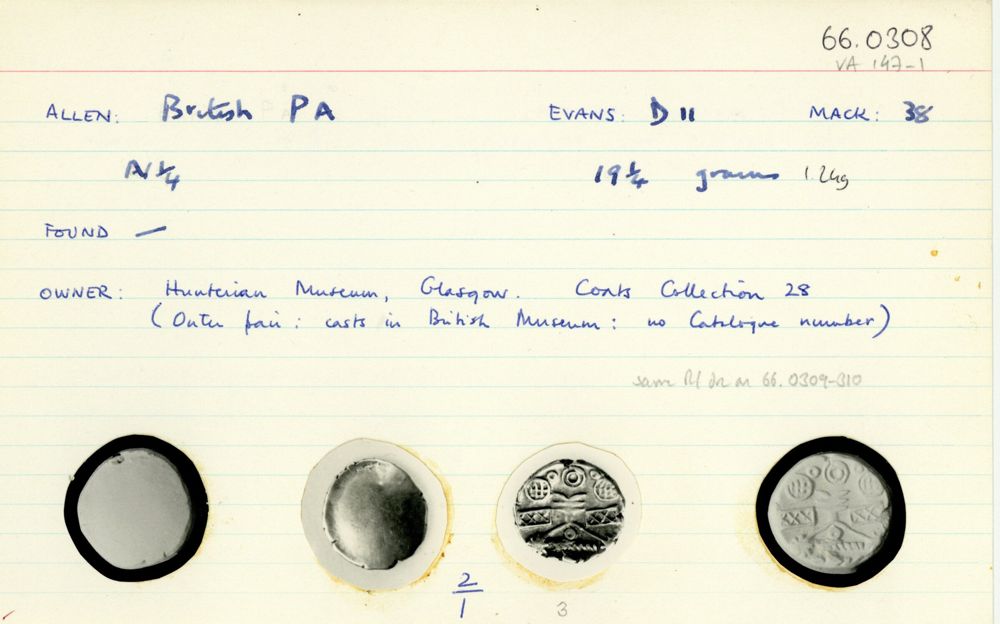 66.0308
VA 147-1
ALLEN: British PA EVANS: D 11 MACK: 38
AV 1/4 19 1/4 grains 1.24g
FOUND —
OWNER: Hunterian Museum, Glasgow. Coats Collection 28
(Outer pair: casts in British Museum: no Catalogue number)
same R/ die as 66.0309-310
2/1 3